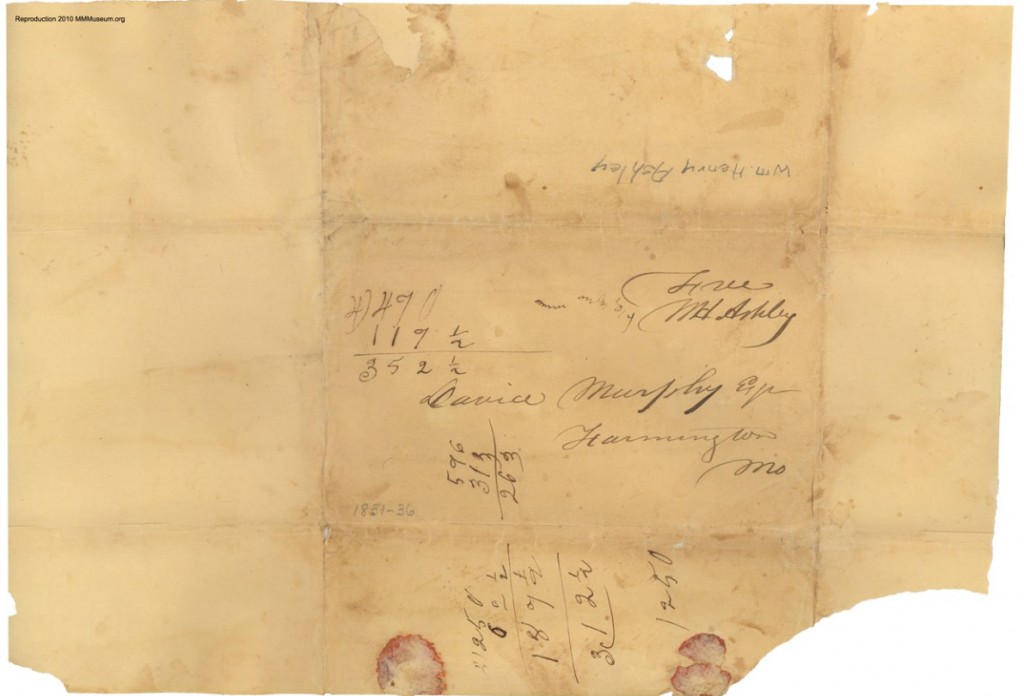 Reproduction 2010 MMMuseum.org
Wm. Henry Ashley
Free
WH Ashley
4)470
119 1/2
352 1/2
David Murphy Esqr
Farmington
Mo
596
313
263
1831-36
1250
187 1/2
31.2 1/2
1250